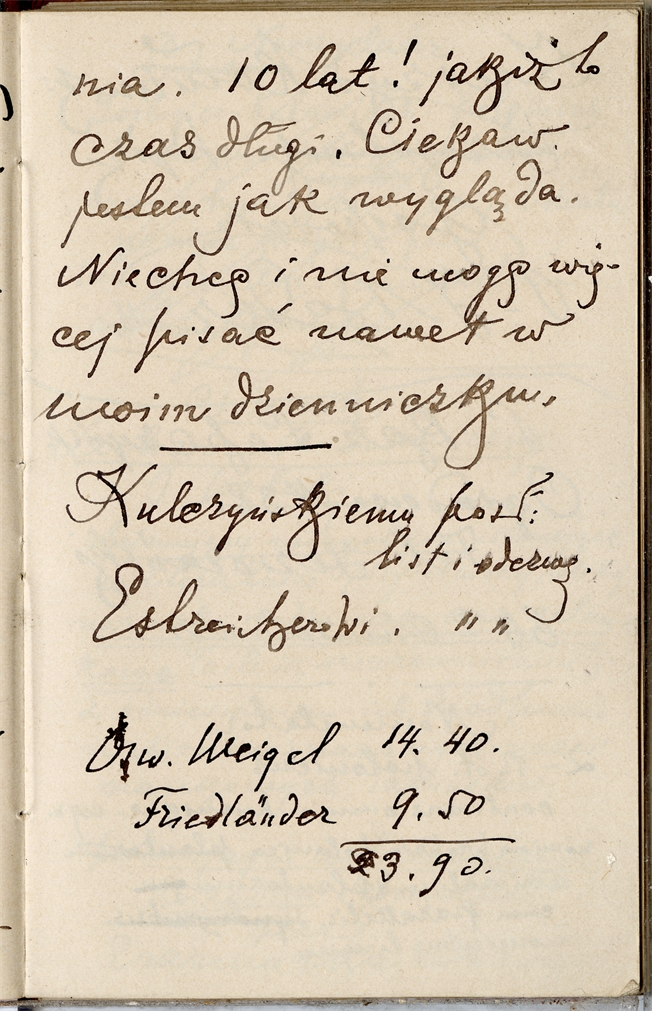 nia. 10 lat! jakżiż to
czas długi. Ciekaw
jestem jak wygląda.
Niechcę i nie mogę wię-
cej pisać nawet w
moim dzienniczku.
Kulczyńskiemu posł:
list i odezwę.
Estreicherowi. " "
Osw. Weigel 14. 40.
Friedländer 9. 50
23. 90.